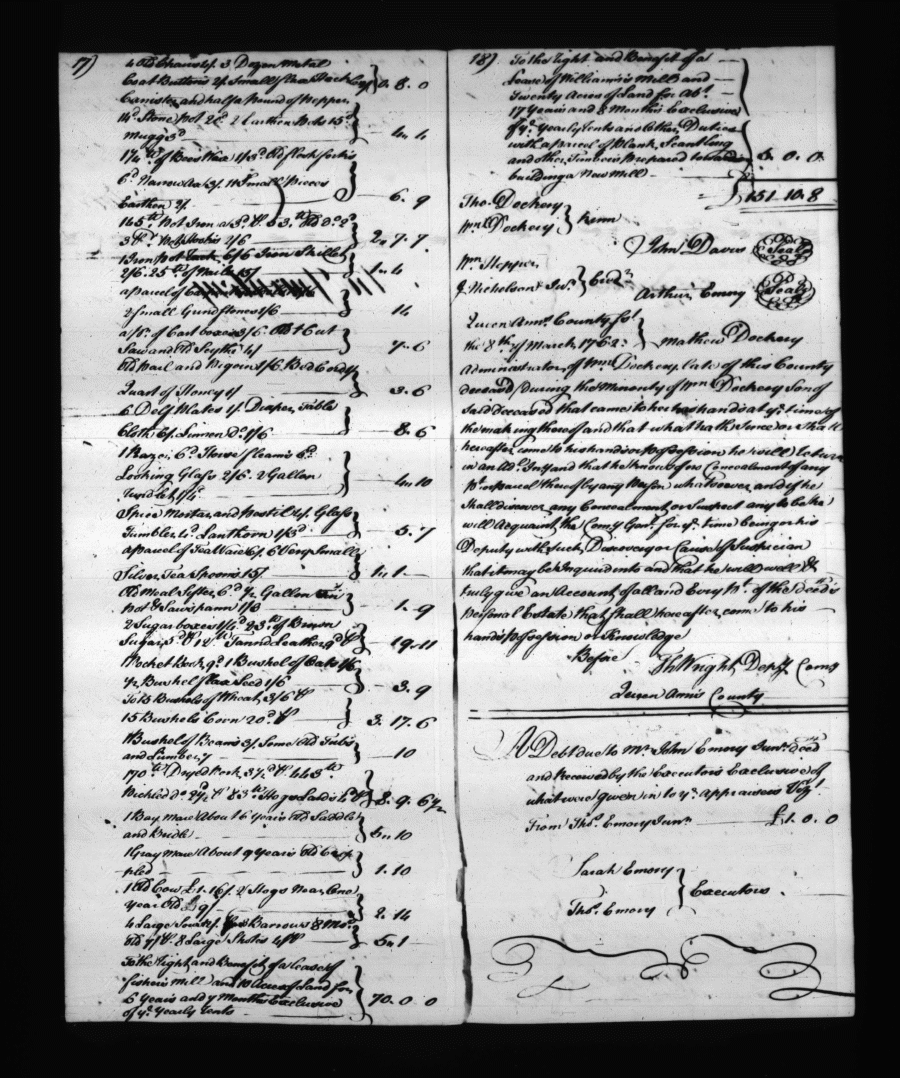 17)
4 Old Chairs 4/. 3 Dozen Metal
Coat Buttons 2/. Small
Canister and half a Pound of Pepper } 0. 8. 0
Stone Pot 2/. 2 Earthen Pots 15d
Mugg 3d } 4 4
of Bees Wax 1/3d Old
6d Narrow Ax 3/. 11 Small Pieces
Earthen 2/. } 6. 9
165 lb Pot Iron a 3d 53 lb Old Do 2d
3 Pot Hooks 2/6 } 2. 7. 7
1 Iron Pot 6/6 Iron Skillet
2/6. 25 lb of Nails 15/ } 1. 4
a parcel of
2 Small Gundstones 1/6 } 14
a pr. of Cart boxes 3/6 Old + Cut
Saw and Old Scythe 4/ } 7. 6
Old Pail and Piggin 1/6 Bed Cord 1/
Quart of Honey 1/ } 3. 6
6 Delf Plates 1/. Diaper Table
Cloth 6/. Linnen Do. 1/6 } 8. 6
1 Razor 6d Horse Fleams 6d
Looking Glass 2/6. 2 Gallon
Rundlet 1/4 } 4. 10
Spice Mortar and Pestil 4/. Glass
Tumbler 4d. Lanthorn 1/3d } 5. 7
a parcel of Tea Ware 6/. 6 Very Small
Silver Tea Spoons 15/ } 1. 1
Old Meal Sifter 6d ½ Gallon Tin
Pot & Sawspann 1/3 } 1. 9
2 Sugar boxes 1/4d 23 lb of Brown
Sugar 5d 12 lb Tann'd Leather 9d } 19. 11
Pocket Book 9d 1 Bushel of Oats 1/6
½ Bushel flax Seed 1/6 } 3. 9
To 15 Bushels of Wheat, 3/6
15 Bushels Corn 20d } 3. 17. 6
1 Bushel of Beans 3/. Some Old Tubs
and Lumber 7 10
170 lb Dryed Pork 3½d 443 lb
Pickled do 2½ 83 lb Hogs Lard 4d } 8. 9. 6½
1 Bay Mare About 6 Years Old Saddle
and Bridle } 5. 10
1 Gray Mare About 9 Years Old Crip
pled } 1. 10
1 Old Cow £1. 16/. 2 Hogs Near One
Year Old 9/ } 2. 14
4 Large Sows 3 Barrows 8 Mos.
Old 7/ 8 Large Shoats 4/ } 5. 1
To the Right and Benefit of a Lease of
fishers Mill and 10 Acres of Land for
6 Years and 7 Months Exclusive
of ye Yearly Rents } 70. 0 0
18)
To the Right and Benefit of a
Lease of Williams's Mill and
Twenty Acres of Land for Abt.
17 Years and 8 Months Exclusive
of ye Yearly Rents and Other Duties
with a parcel of Plank Scantling
and other Timber Prepared towards
building a New Mill } 5. 0. 0.
151. 10. 8
Tho Dockery
Wm Dockery } Kinn
John Davis Seal
Wm Hopper
J. Nicholson Junr. } Credrs
Arthur Emory Seal
Queen Anns County Sst
the 8th of March 1762: } Mathew Dockery
Administrator of Wm Dockery late of this County
deceased (during the Minority of Wm Dockery Son of
said Deceased that came to his hands at ye. time of
the making thereof and that what hath Since or Shall
hereafter come to his hands or Possession he will return
in an Adl. Inv. and that he knows of no Concealment of any
pt. or parcel thereof by any Person whatsoever and if he
Shall discover any Concealment or Suspect any to be he
will Acquaint the Comy Genl. for ye. time being or his
Deputy with such Discovery or Cause of Suspicion
that it may be Inquired into and that he will well &
truly give an Account of all and Every Pt. of the deced's
Personal Estate that Shall hereafter come to his
hands Possession or Knowledge
Before Th Wright Depy Comy
Queen Anns County
A Debt due to Mr John Emory Junr deced
and Received by the Executors Exclusive of
what were given in to ye. Appraisers Viz't
From Thos. Emory Junr £1. 0. 0
Sarah Emory
Thos. Emory } Executors